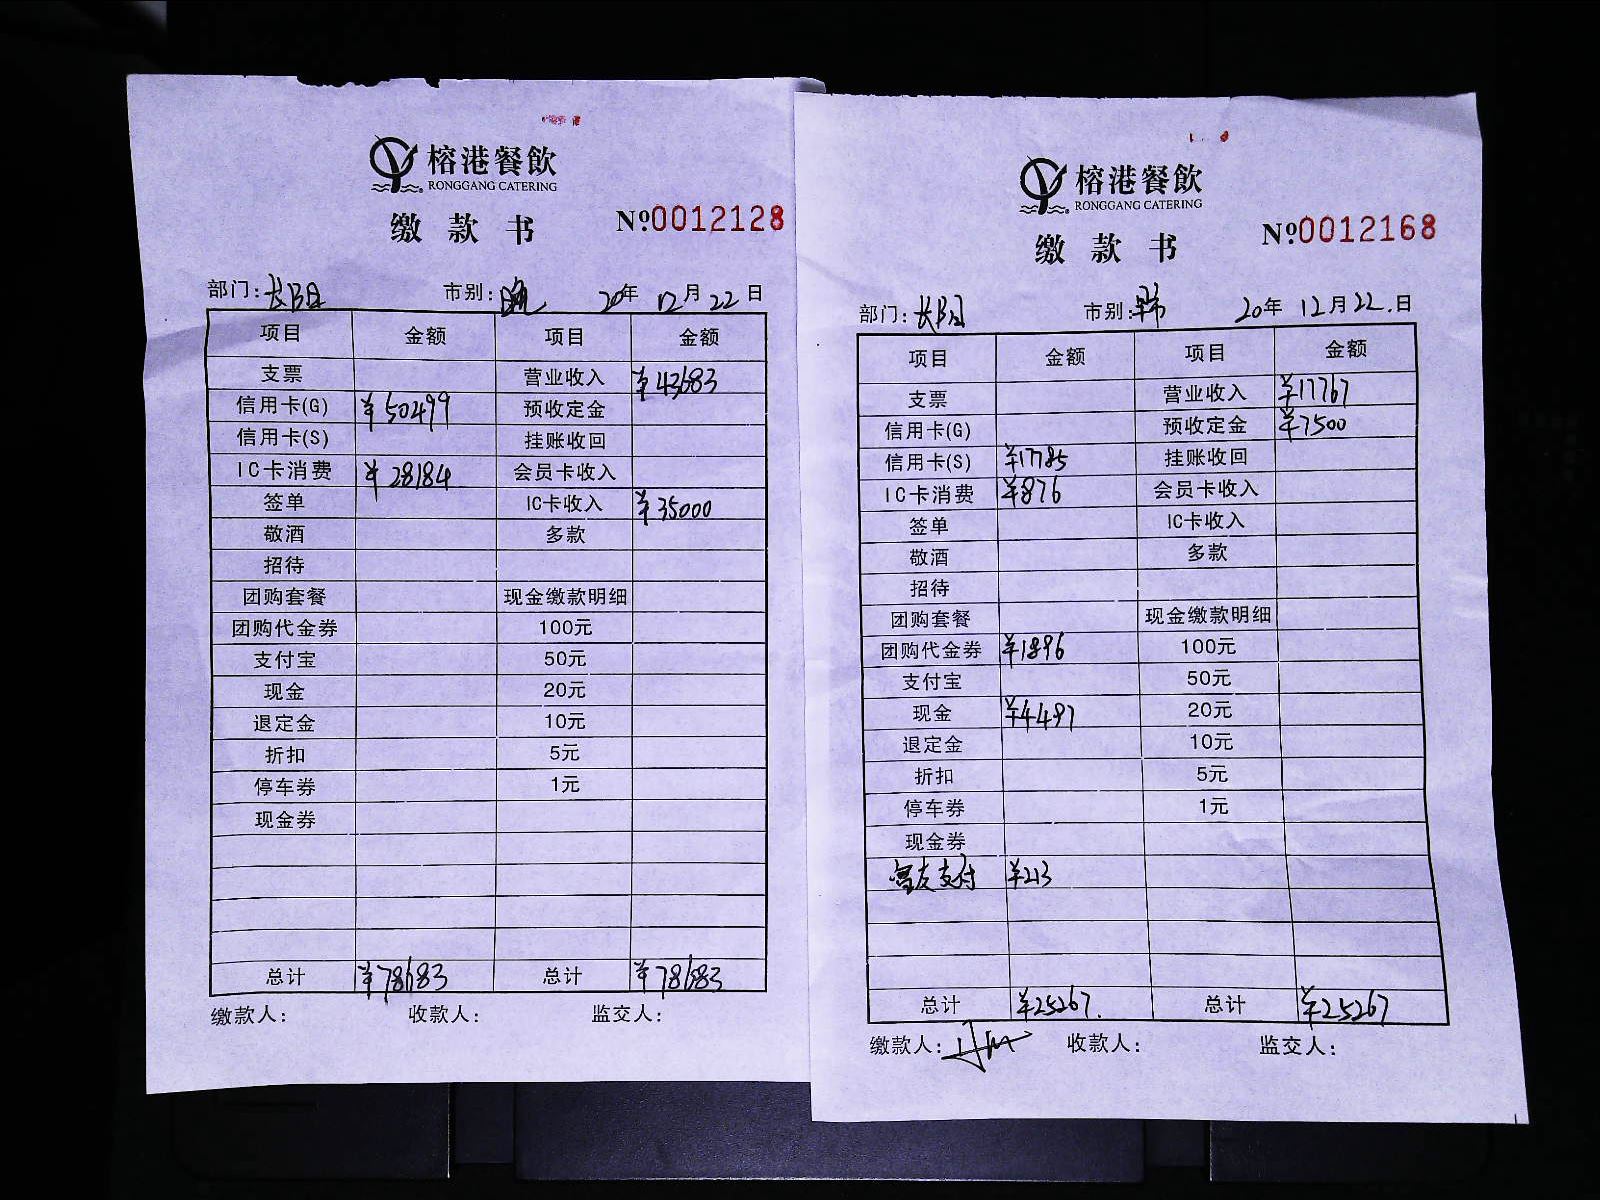 榕港餐飲
RONGGANG CATERING
缴款书 №0012128
部门: 长阳 市别: 晚 20年 12月 22日
项目 金额 项目 金额
支票 营业收入 ¥43683
信用卡(G) ¥50499 预收定金
信用卡(S) 挂账收回
IC卡消费 ¥28184 会员卡收入
签单 IC卡收入 ¥35000
敬酒 多款
招待
团购套餐 现金缴款明细
团购代金券 100元
支付宝 50元
现金 20元
退定金 10元
折扣 5元
停车券 1元
现金券
总计 ¥78683 总计 ¥78683
缴款人: 收款人: 监交人:
榕港餐飲
RONGGANG CATERING
缴款书 №0012168
部门: 长阳 市别: 20年 12月 22.日
项目 金额 项目 金额
支票 营业收入 ¥17767
信用卡(G) 预收定金 ¥7500
信用卡(S) ¥17785 挂账收回
IC卡消费 ¥876 会员卡收入
签单 IC卡收入
敬酒 多款
招待
团购套餐 现金缴款明细
团购代金券 ¥1896 100元
支付宝 50元
现金 ¥4497 20元
退定金 10元
折扣 5元
停车券 1元
现金券
支付 ¥213
总计 ¥25267. 总计 ¥25267
缴款人: 收款人: 监交人: